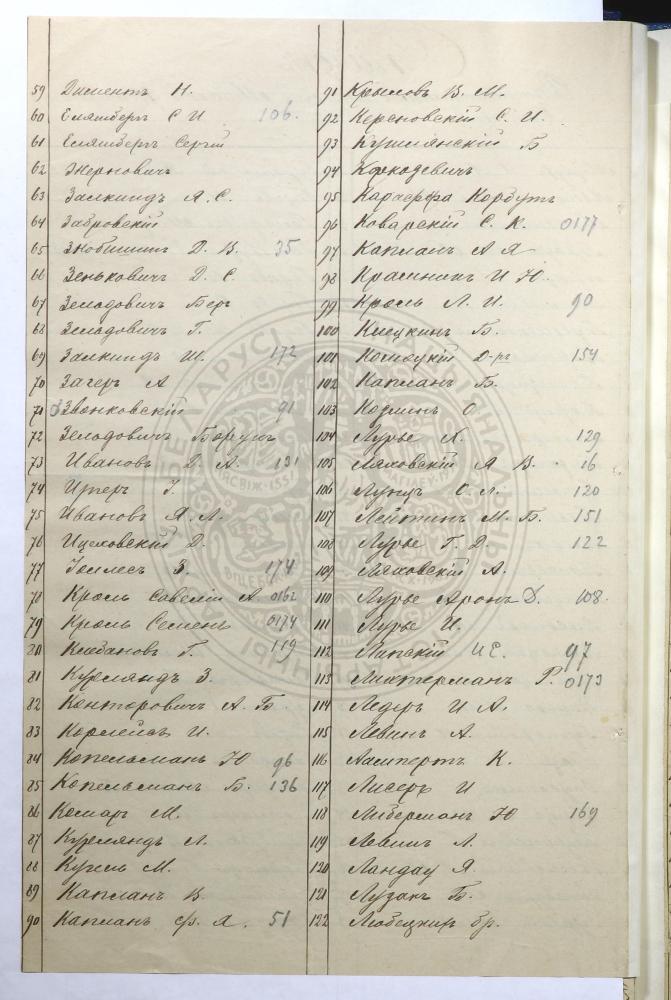 59 Диментъ Н.
60 Еляшбергъ С И 106.
61 Еляшбергъ Сергѣй
62 Жерновичъ
63 Залкиндъ А. С.
64 Забровскій
65 Д. В. 35
66 Зеньковичъ Д. С.
67 Зельдовичъ Беръ
68 Зельдовичъ Г.
69 Залкиндъ Ш. 172
70 Загеръ А
71 Звонковскій 91
72 Зельдовичъ Борухъ
73 Ивановъ Д. А. 131
74 І.
75 Ивановъ Я. Л.
76 Ицковскій Д.
77 З. 174
78 Кроль Савелій А. 0162
79 Кроль Семенъ 0174
80 Клебановъ Г. 119
81 Курляндъ З.
82 Канторовичъ А. Б.
83 И.
84 Копельманъ Ю 96
85 Копельманъ Б. 136
86 Комаръ М.
87 Курляндъ Л.
88 М.
89 Капланъ В
90 Капланъ А. 51
91 Крыловъ В. М.
92 Керсновскій С. И.
93 Кушлянскій Б
94
95 Корбутъ
96 Коварскій С. К. 0177
97 Капланъ А Я
98 И Ю.
99 Кроль Л. И. 90
100 Клецкинъ Б.
101 Д-ръ 154
102 Капланъ Б.
103 О
104 Лурье Х. 129
105 Ляховскій Я В. 16
106 Лунцъ О. Л. 120
107 Лейтинъ М. Б. 151
108 Лурье Г. Д. 122
109 Ляховскій А.
110 Лурье Аронъ Д. 108.
111 Лурье И.
112 Лапскій И Е. 97
113 Лихтерманъ Р. 0173
114 Ледеръ И А.
115 Левинъ А.
116 Лампертъ К.
117 И
118 Либерманъ Ю 169
119 Левинъ Л.
120 Ландау Я.
121 Б.
122 Любецкій Гр.